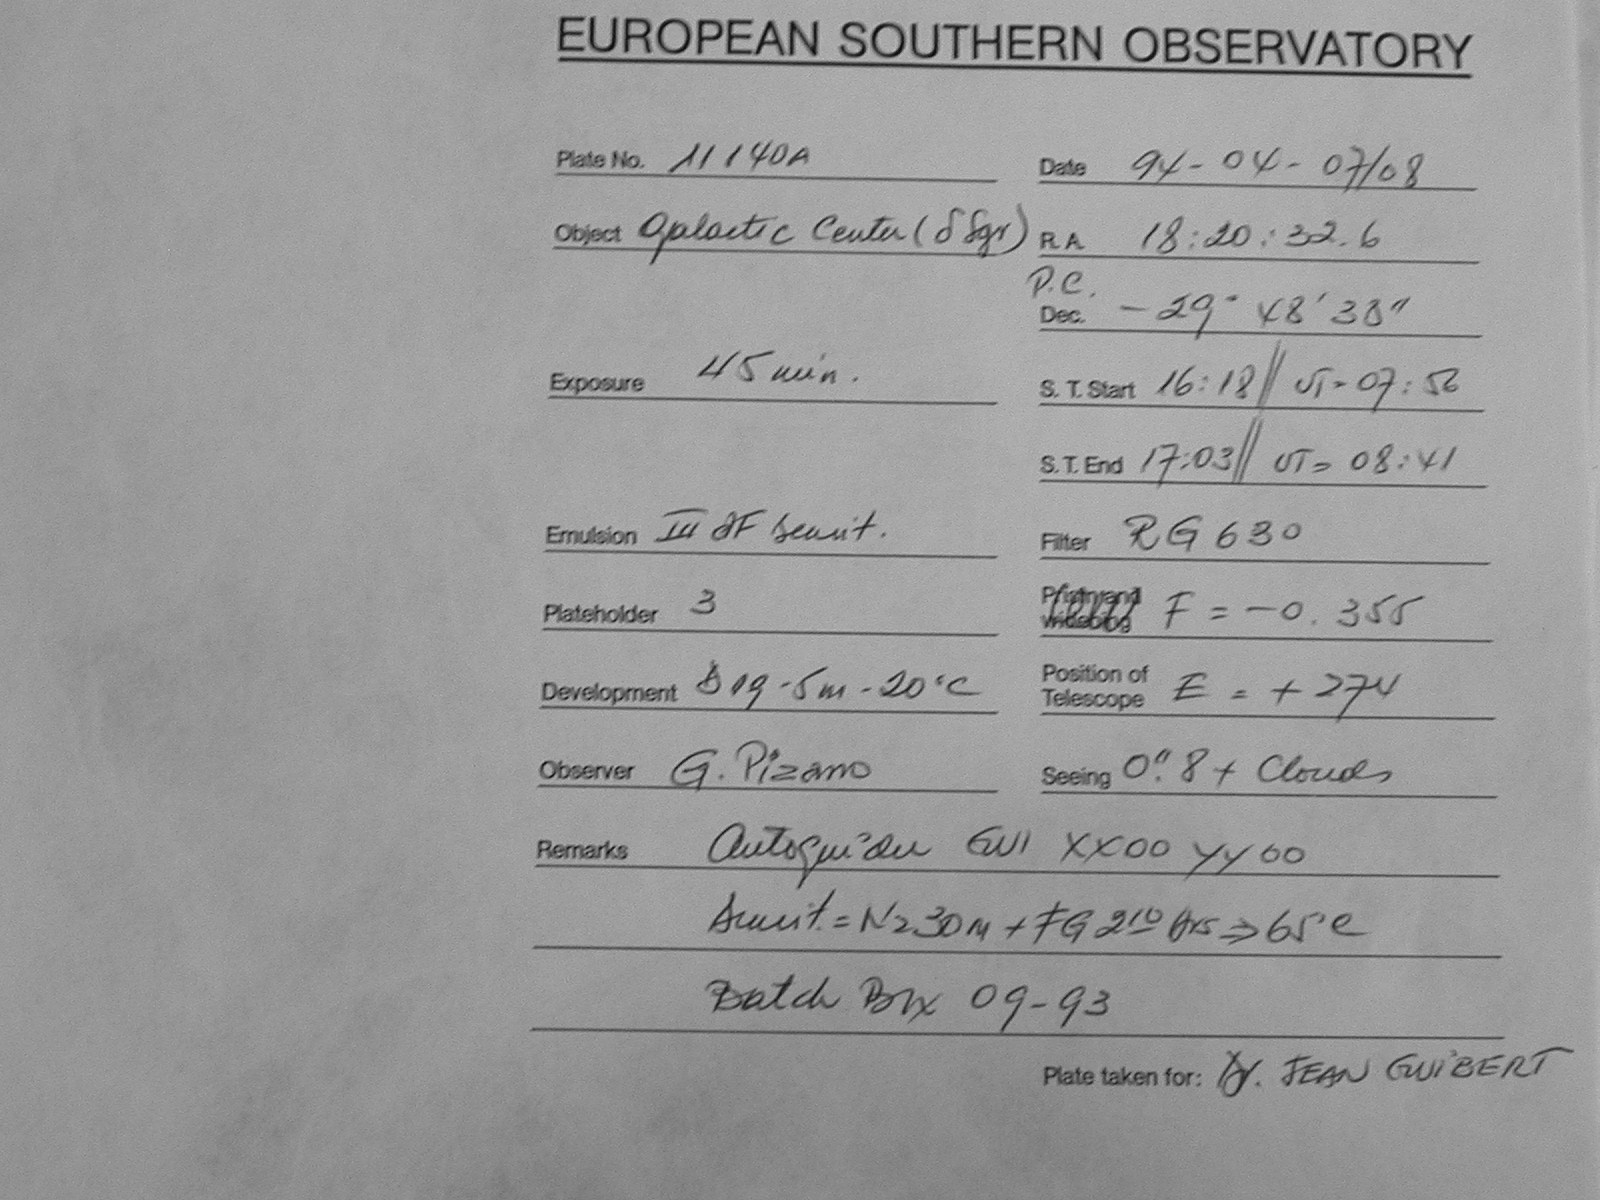 EUROPEAN SOUTHERN OBSERVATORY
Plate No. 11140A Date 94-04-07/08
Object Galactic Center (δ Sgr) R.A. 18:20:32.6
P.C.
Dec. -29° 48' 38"
Exposure 45 min. S. T. Start 16:18 // UT= 07:56
S. T. End 17:03 // UT= 08:41
Emulsion III aF sensit. Filter RG 630
Plateholder 3 F = -0.355
Development D19-5m-20°C Position of Telescope E = +274
Observer G. Pizarro Seeing 0".8 + Clouds
Remarks Autoguider GUI XX00 YY00
Sensit. = N2 30m + FG 2 Hrs => 65°C
Batch Box 09-93
Plate taken for: Dr. JEAN GUIBERT